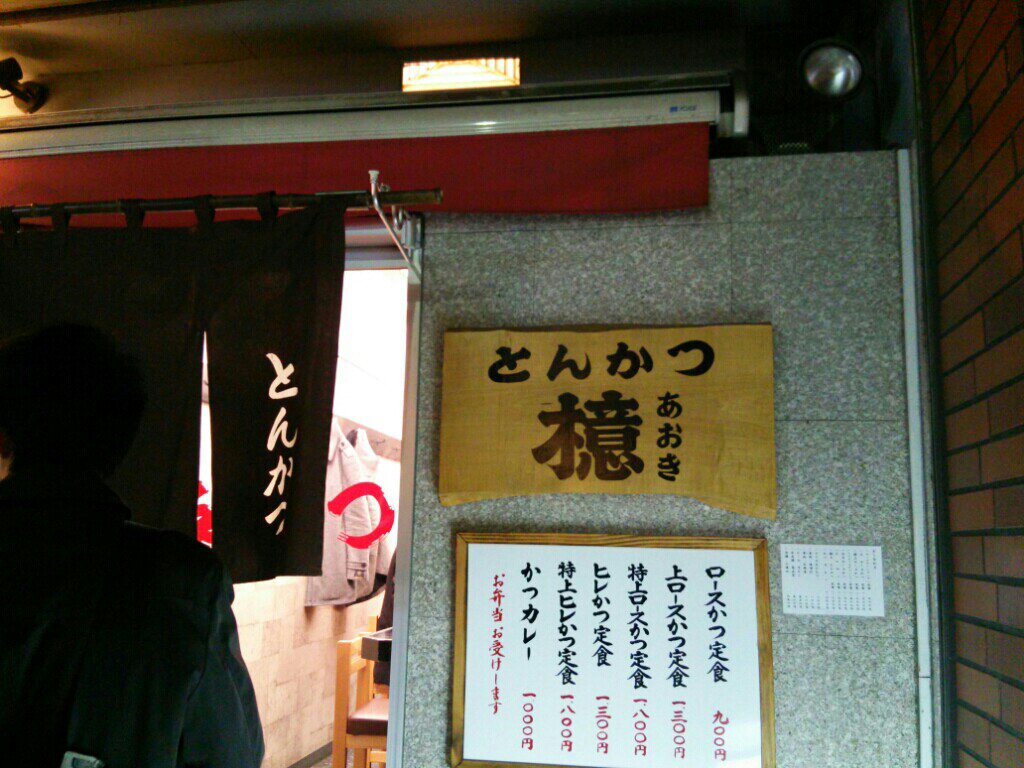 とんかつ
檍
あおき
とんかつ
つ
ロースかつ定食 九〇〇円
上ロースかつ定食 一三〇〇円
特上ロースかつ定食 一、八〇〇円
ヒレかつ定食 一三〇〇円
特上ヒレかつ定食 一八〇〇円
かつカレー 一〇〇〇円
お弁当お受けします